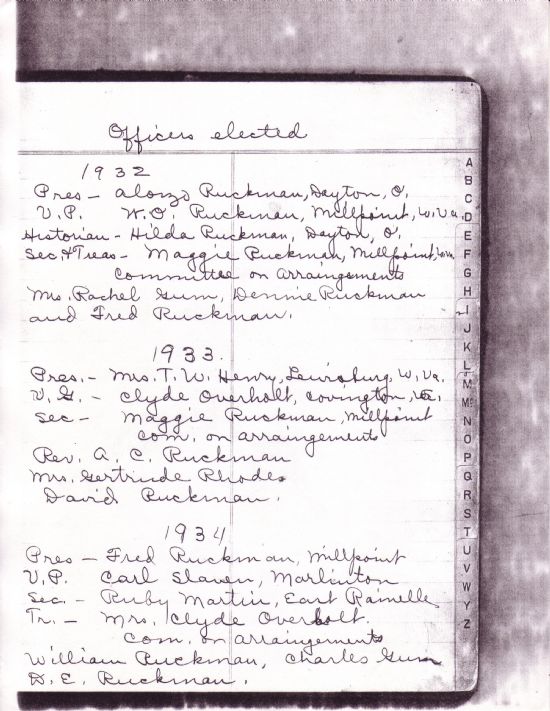 Officers elected
1932
Pres — Alonzo Ruckman, Dayton, O.
V.P. W.O. Ruckman, Millpoint, W.Va.
Historian - Hilda Ruckman, Dayton, O.
Sec. & Treas - Maggie Ruckman, Millpoint, W.Va.
Committee on arrangements
Mrs. Rachel Gum, Dennie Ruckman
and Fred Ruckman.
1933.
Pres. - Mrs. T. W. Henry, Lewisburg, W. Va.
Clyde Overholt, Covington, Va.
Sec — Maggie Ruckman, Millpoint
Com. on arrangements
Rev. A. C. Ruckman
Mrs. Gertrude Rhodes
David Ruckman.
1934
Pres — Fred Ruckman, Millpoint
V.P. Carl Slaven, Marlinton
Sec. - Ruby Martin, East Rainelle
Tr. - Mrs. Clyde Overholt.
Com. on arrangements
William Ruckman, Charles Gum
D. E. Ruckman.
A
B
C
D
E
F
G
H
I
J
K
L
M
Mc
N
O
P
Q
R
S
T
U
V
W
Y
Z